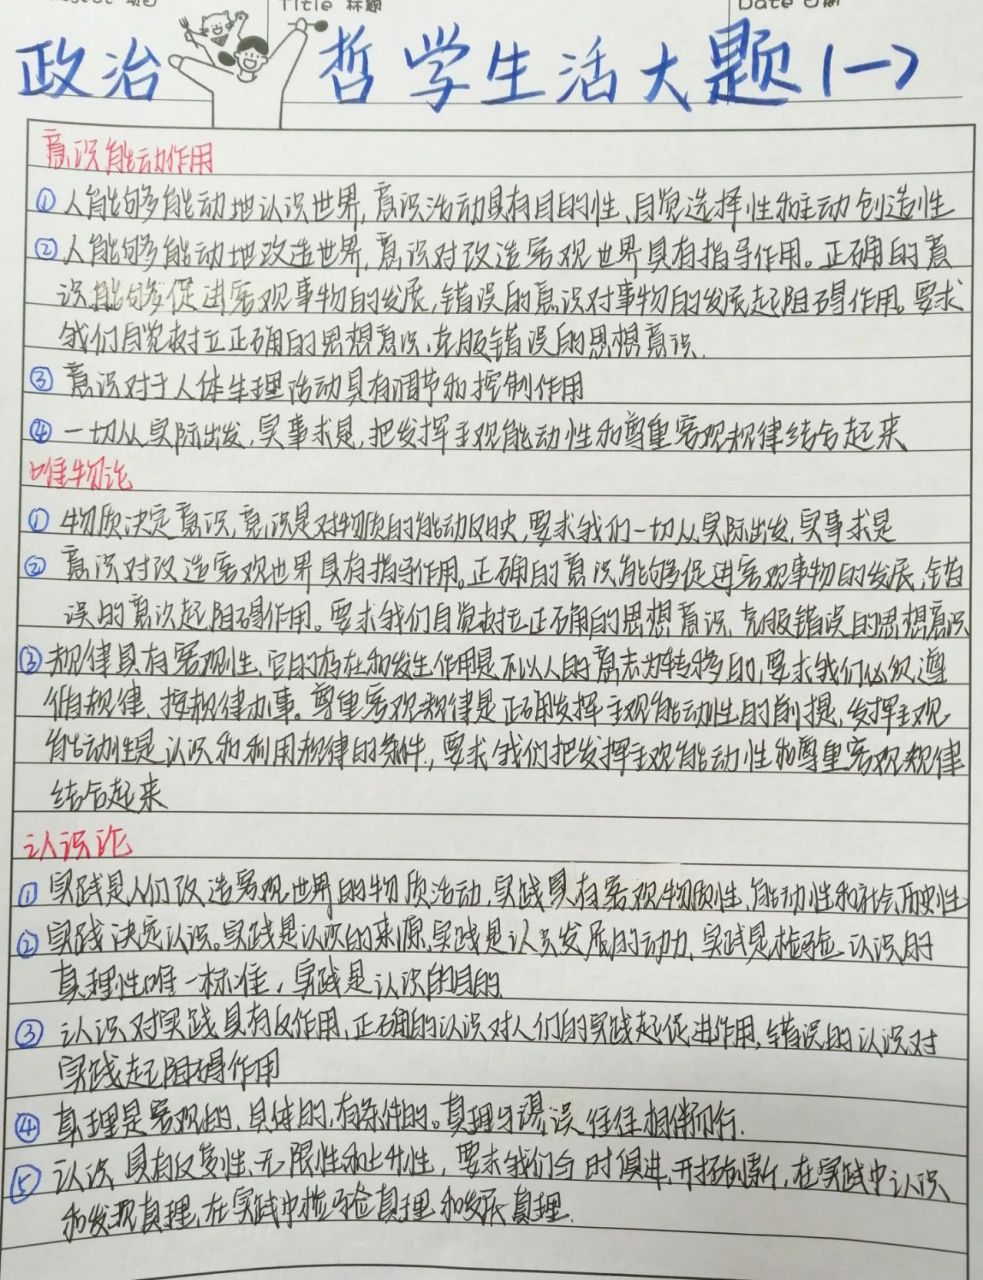 Title 标题
Date 日期
政治 哲学生活大题(一)
意识能动作用
① 人能够能动地认识世界,意识活动具有目的性、自觉选择性和主动创造性
② 人能够能动地改造世界,意识对改造客观世界具有指导作用。正确的意
识能够促进客观事物的发展,错误的意识对事物的发展起阻碍作用。要求
我们自觉树立正确的思想意识、克服错误的思想意识.
③ 意识对于人体生理活动具有调节和控制作用
④ 一切从实际出发,实事求是,把发挥主观能动性和尊重客观规律结合起来
唯物论
① 物质决定意识,意识是对物质的能动反映,要求我们一切从实际出发,实事求是
② 意识对改造客观世界具有指导作用。正确的意识能够促进客观事物的发展,错
误的意识起阻碍作用。要求我们自觉树立正确的思想意识,克服错误的思想意识
③ 规律具有客观性,它的存在和发生作用是不以人的意志为转移的,要求我们必须遵
循规律、按规律办事。尊重客观规律是正确发挥主观能动性的前提,发挥主观
能动性是认识和利用规律的条件,要求我们把发挥主观能动性和尊重客观规律
结合起来
认识论
① 实践是人们改造客观世界的物质活动,实践具有客观物质性、能动性和社会历史性
② 实践决定认识。实践是认识的来源,实践是认识发展的动力,实践是检验认识的
真理性唯一标准,实践是认识的目的
③ 认识对实践具有反作用,正确的认识对人们的实践起促进作用,错误的认识对
实践起阻碍作用
④ 真理是客观的、具体的,有条件的。真理与谬误往往相伴而行.
⑤ 认识具有反复性、无限性和上升性,要求我们与时俱进、开拓创新,在实践中认识
和发现真理,在实践中检验真理和发展真理.